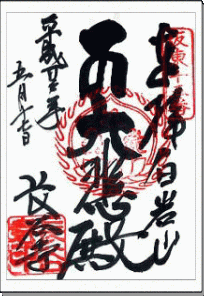 坂東十五番
奉拝白岩山
大悲殿
平成廿
五月十
長谷寺